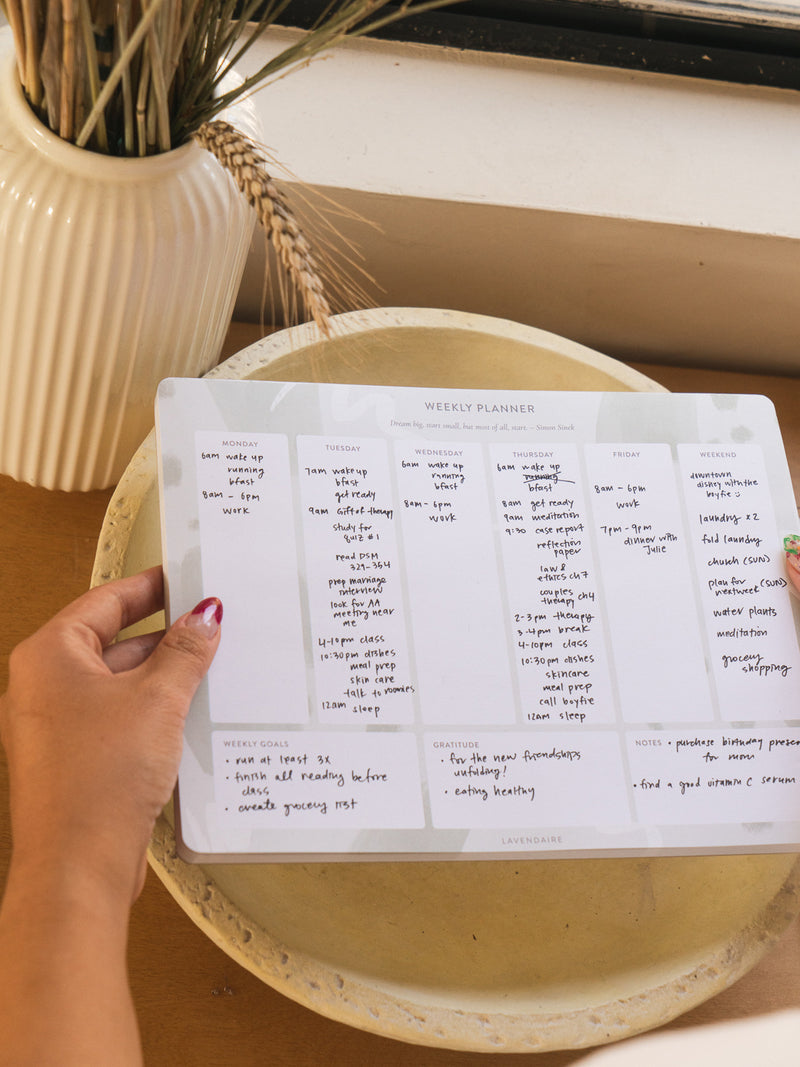 WEEKLY PLANNER
Dream big, start small, but most of all, start. – Simon Sinek
MONDAY
6am wake up
running
bfast
8am - 6pm
work
TUESDAY
7am wake up
bfast
get ready
9am Gift of therapy
study for
quiz #1
read DSM
321-354
prep marriage
interview
look for AA
meeting near
me
4-10pm class
10:30pm dishes
meal prep
skin care
talk to roomies
12am sleep
WEDNESDAY
6am wake up
running
bfast
8am - 6pm
work
THURSDAY
6am wake up
running
bfast
8am get ready
9am meditation
9:30 case report
reflection
paper
law &
ethics ch7
couples
therapy ch4
2-3pm therapy
3-4pm break
4-10pm class
10:30pm dishes
skincare
meal prep
call boyfie
12am sleep
FRIDAY
8am - 6pm
work
7pm - 9pm
dinner with
Julie
WEEKEND
downtown
disney with the
boyfie :)
laundry x2
fold laundry
church (SUN)
plan for (SUN)
next week
water plants
meditation
grocery
shopping
WEEKLY GOALS
• run at least 3x
• finish all reading before
class
• create grocery list
GRATITUDE
• for the new friendships
unfolding!
• eating healthy
NOTES • purchase birthday presen
for mom
• find a good vitamin C serum
LAVENDAIRE